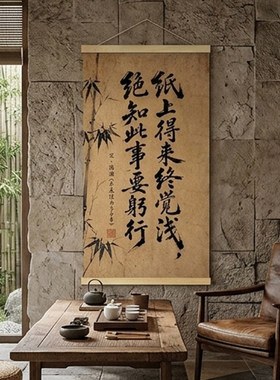 纸上得来终觉浅，
绝知此事要躬行